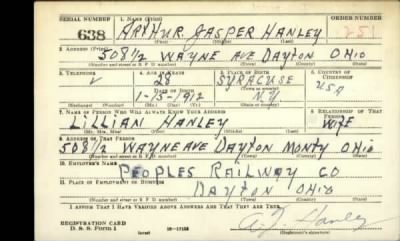 SERIAL NUMBER 1. NAME (Print) ORDER NUMBER
638 ARTHUR JASPER HANLEY 251
(First) (Middle) (Last)
2. ADDRESS (Print)
508 1/2 WAYNE AVE DAYTON OHIO
(Number and street or R. F. D. number) (Town) (County) (State)
3. TELEPHONE 4. AGE IN YEARS 5. PLACE OF BIRTH 6. COUNTRY OF CITIZENSHIP
28 SYRACUSE
DATE OF BIRTH (Town or county) USA
1-15-1912 N.Y.
(Exchange) (Number) (Mo.) (Day) (Yr.) (State or country)
7. NAME OF PERSON WHO WILL ALWAYS KNOW YOUR ADDRESS 8. RELATIONSHIP OF THAT PERSON
LILLIAN HANLEY WIFE
(Mr., Mrs., Miss) (First) (Middle) (Last)
9. ADDRESS OF THAT PERSON
508 1/2 WAYNE AVE DAYTON MONTY OHIO
(Number and street or R. F. D. number) (Town) (County) (State)
10. EMPLOYER'S NAME
PEOPLES RAILWAY CO
11. PLACE OF EMPLOYMENT OR BUSINESS
DAYTON OHIO
(Number and street or R. F. D. number) (Town) (County) (State)
I AFFIRM THAT I HAVE VERIFIED ABOVE ANSWERS AND THAT THEY ARE TRUE.
REGISTRATION CARD
D. S. S. Form 1 (over) A J Hanley
(Registrant's signature)